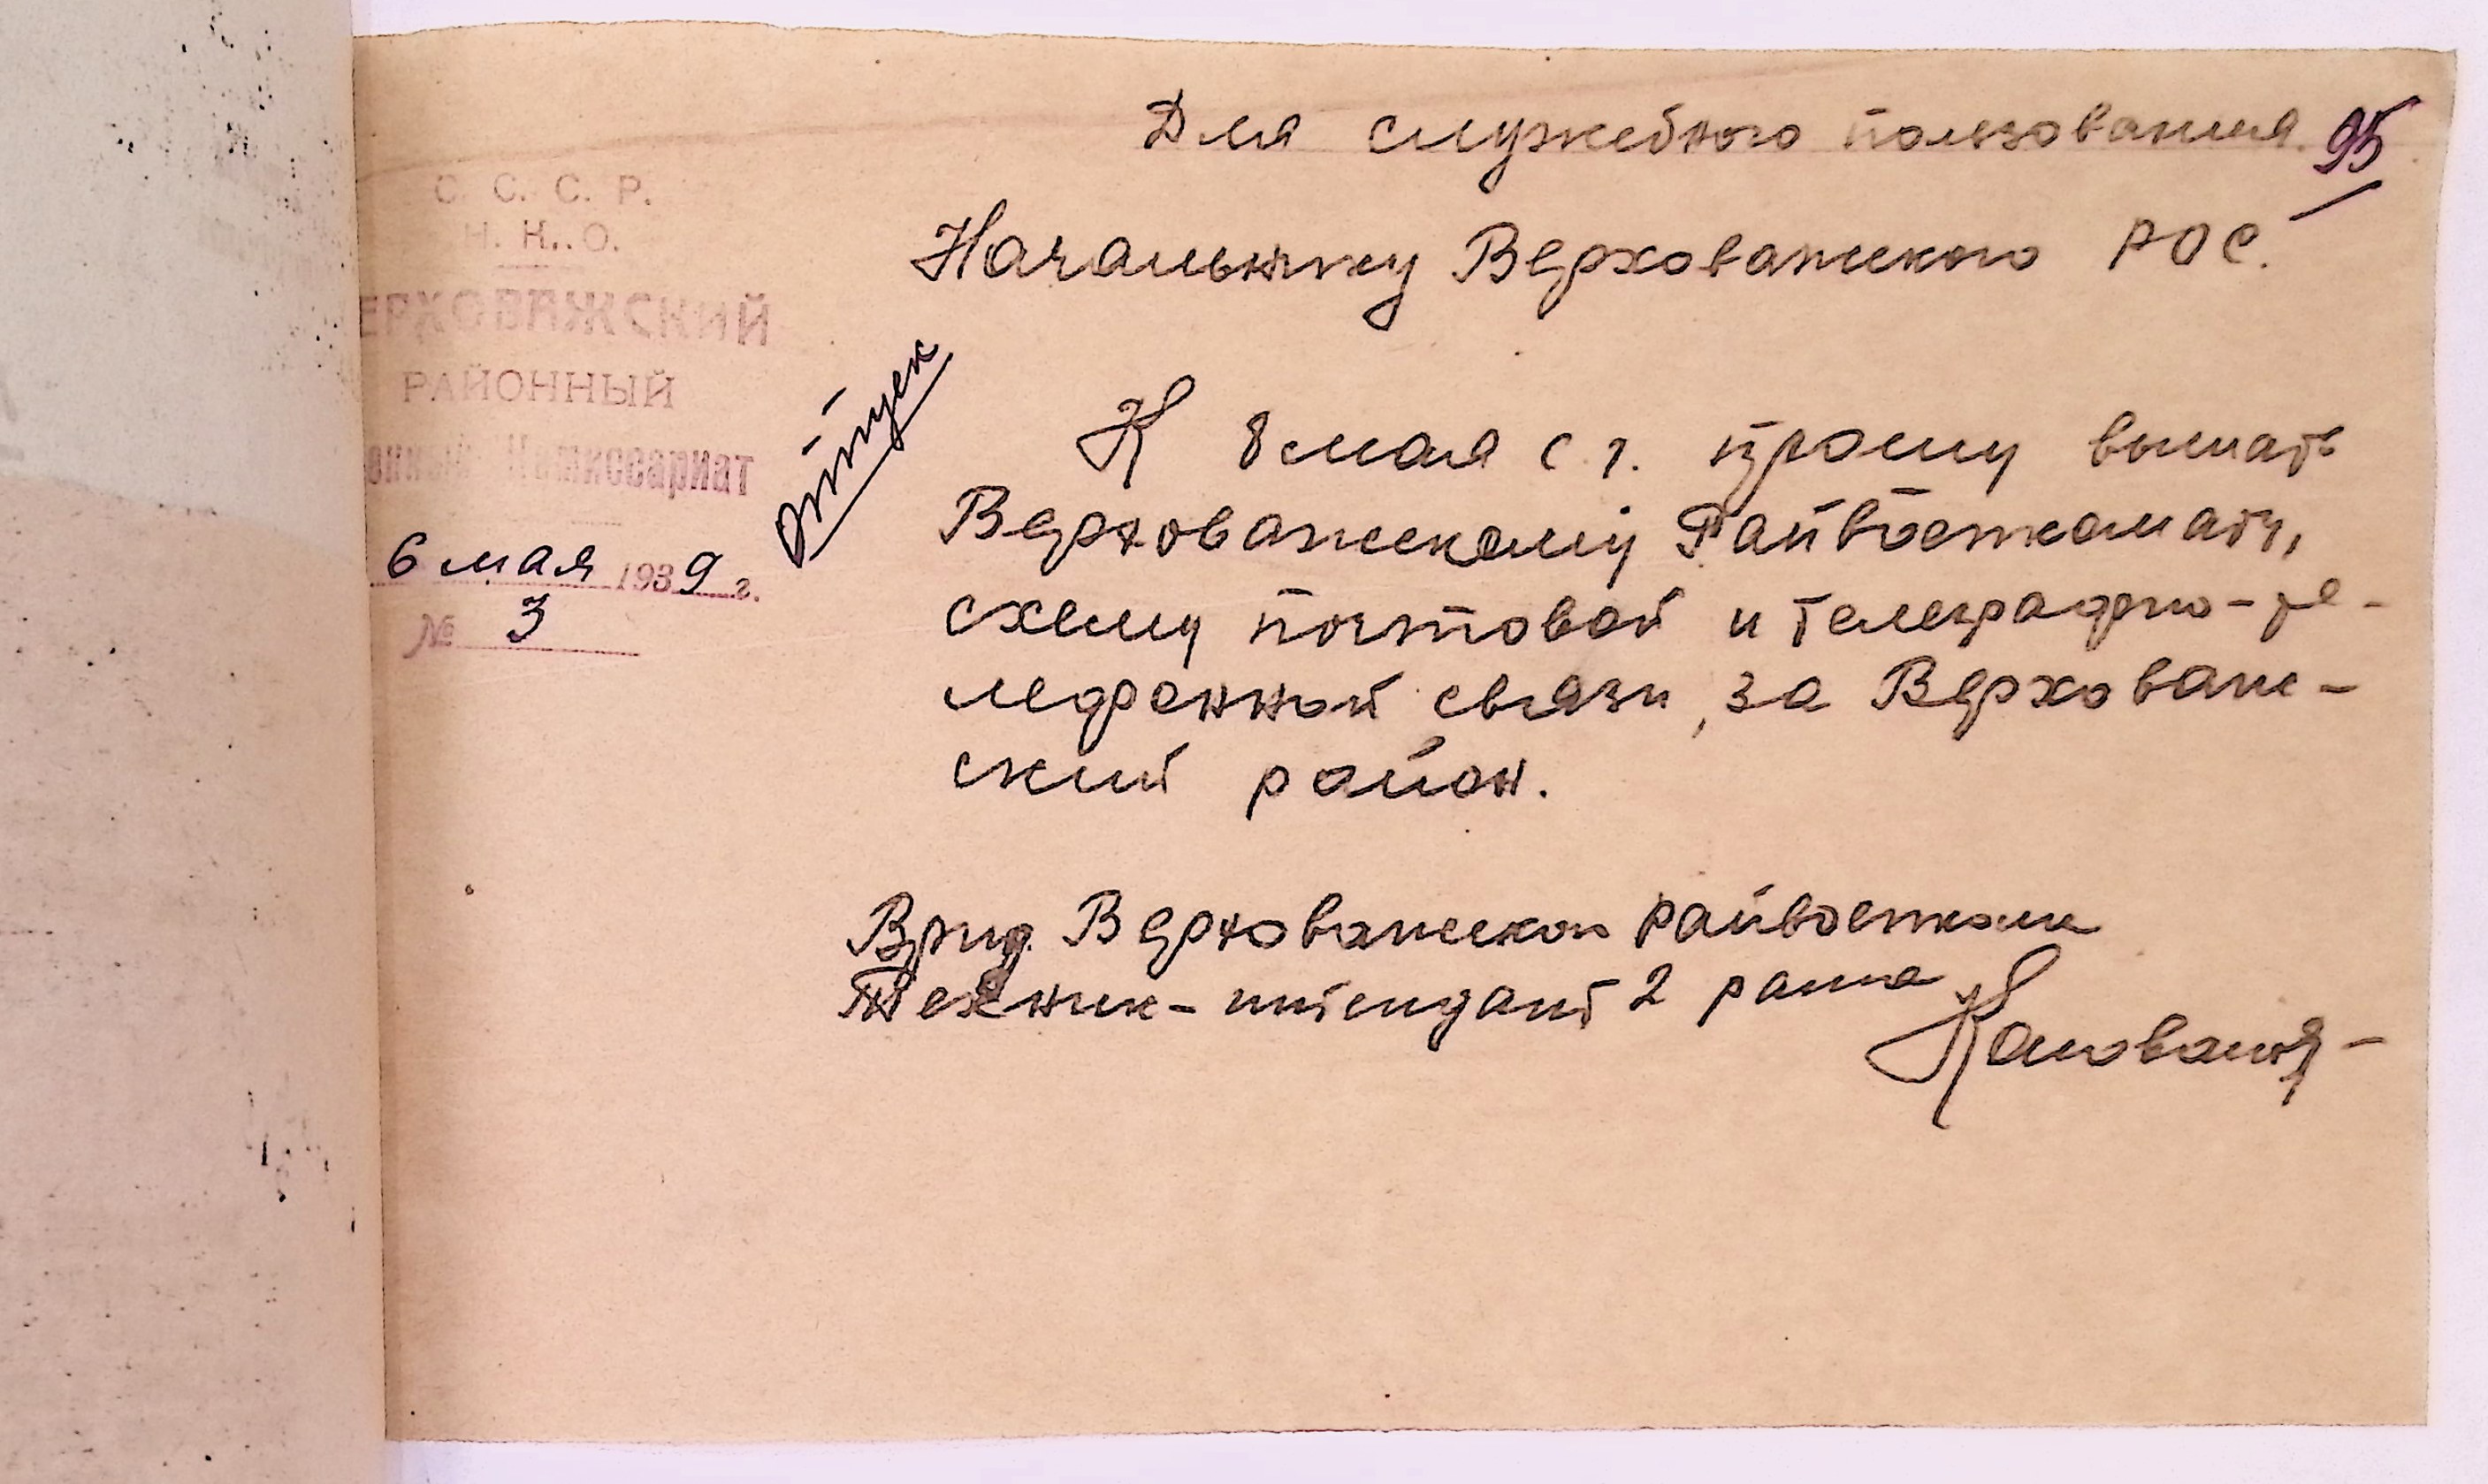 Для служебного пользования. 95
С. С. С. Р.
Н. К. О.
ЕРХОВАЖСКИЙ
РАЙОННЫЙ
оенный Комиссариат
6 мая 1939 г.
№ 3
Отпуск
Начальнику Верховажского РОС.
К 8 мая с. г. прошу выслать
Верховажскому Райвоенкомату,
схему почтовой и телеграфно-те-
лефонной связи, за Верховаж-
ский район.
Врид. Верховажского райвоенкома
Техник-интендант 2 ранга